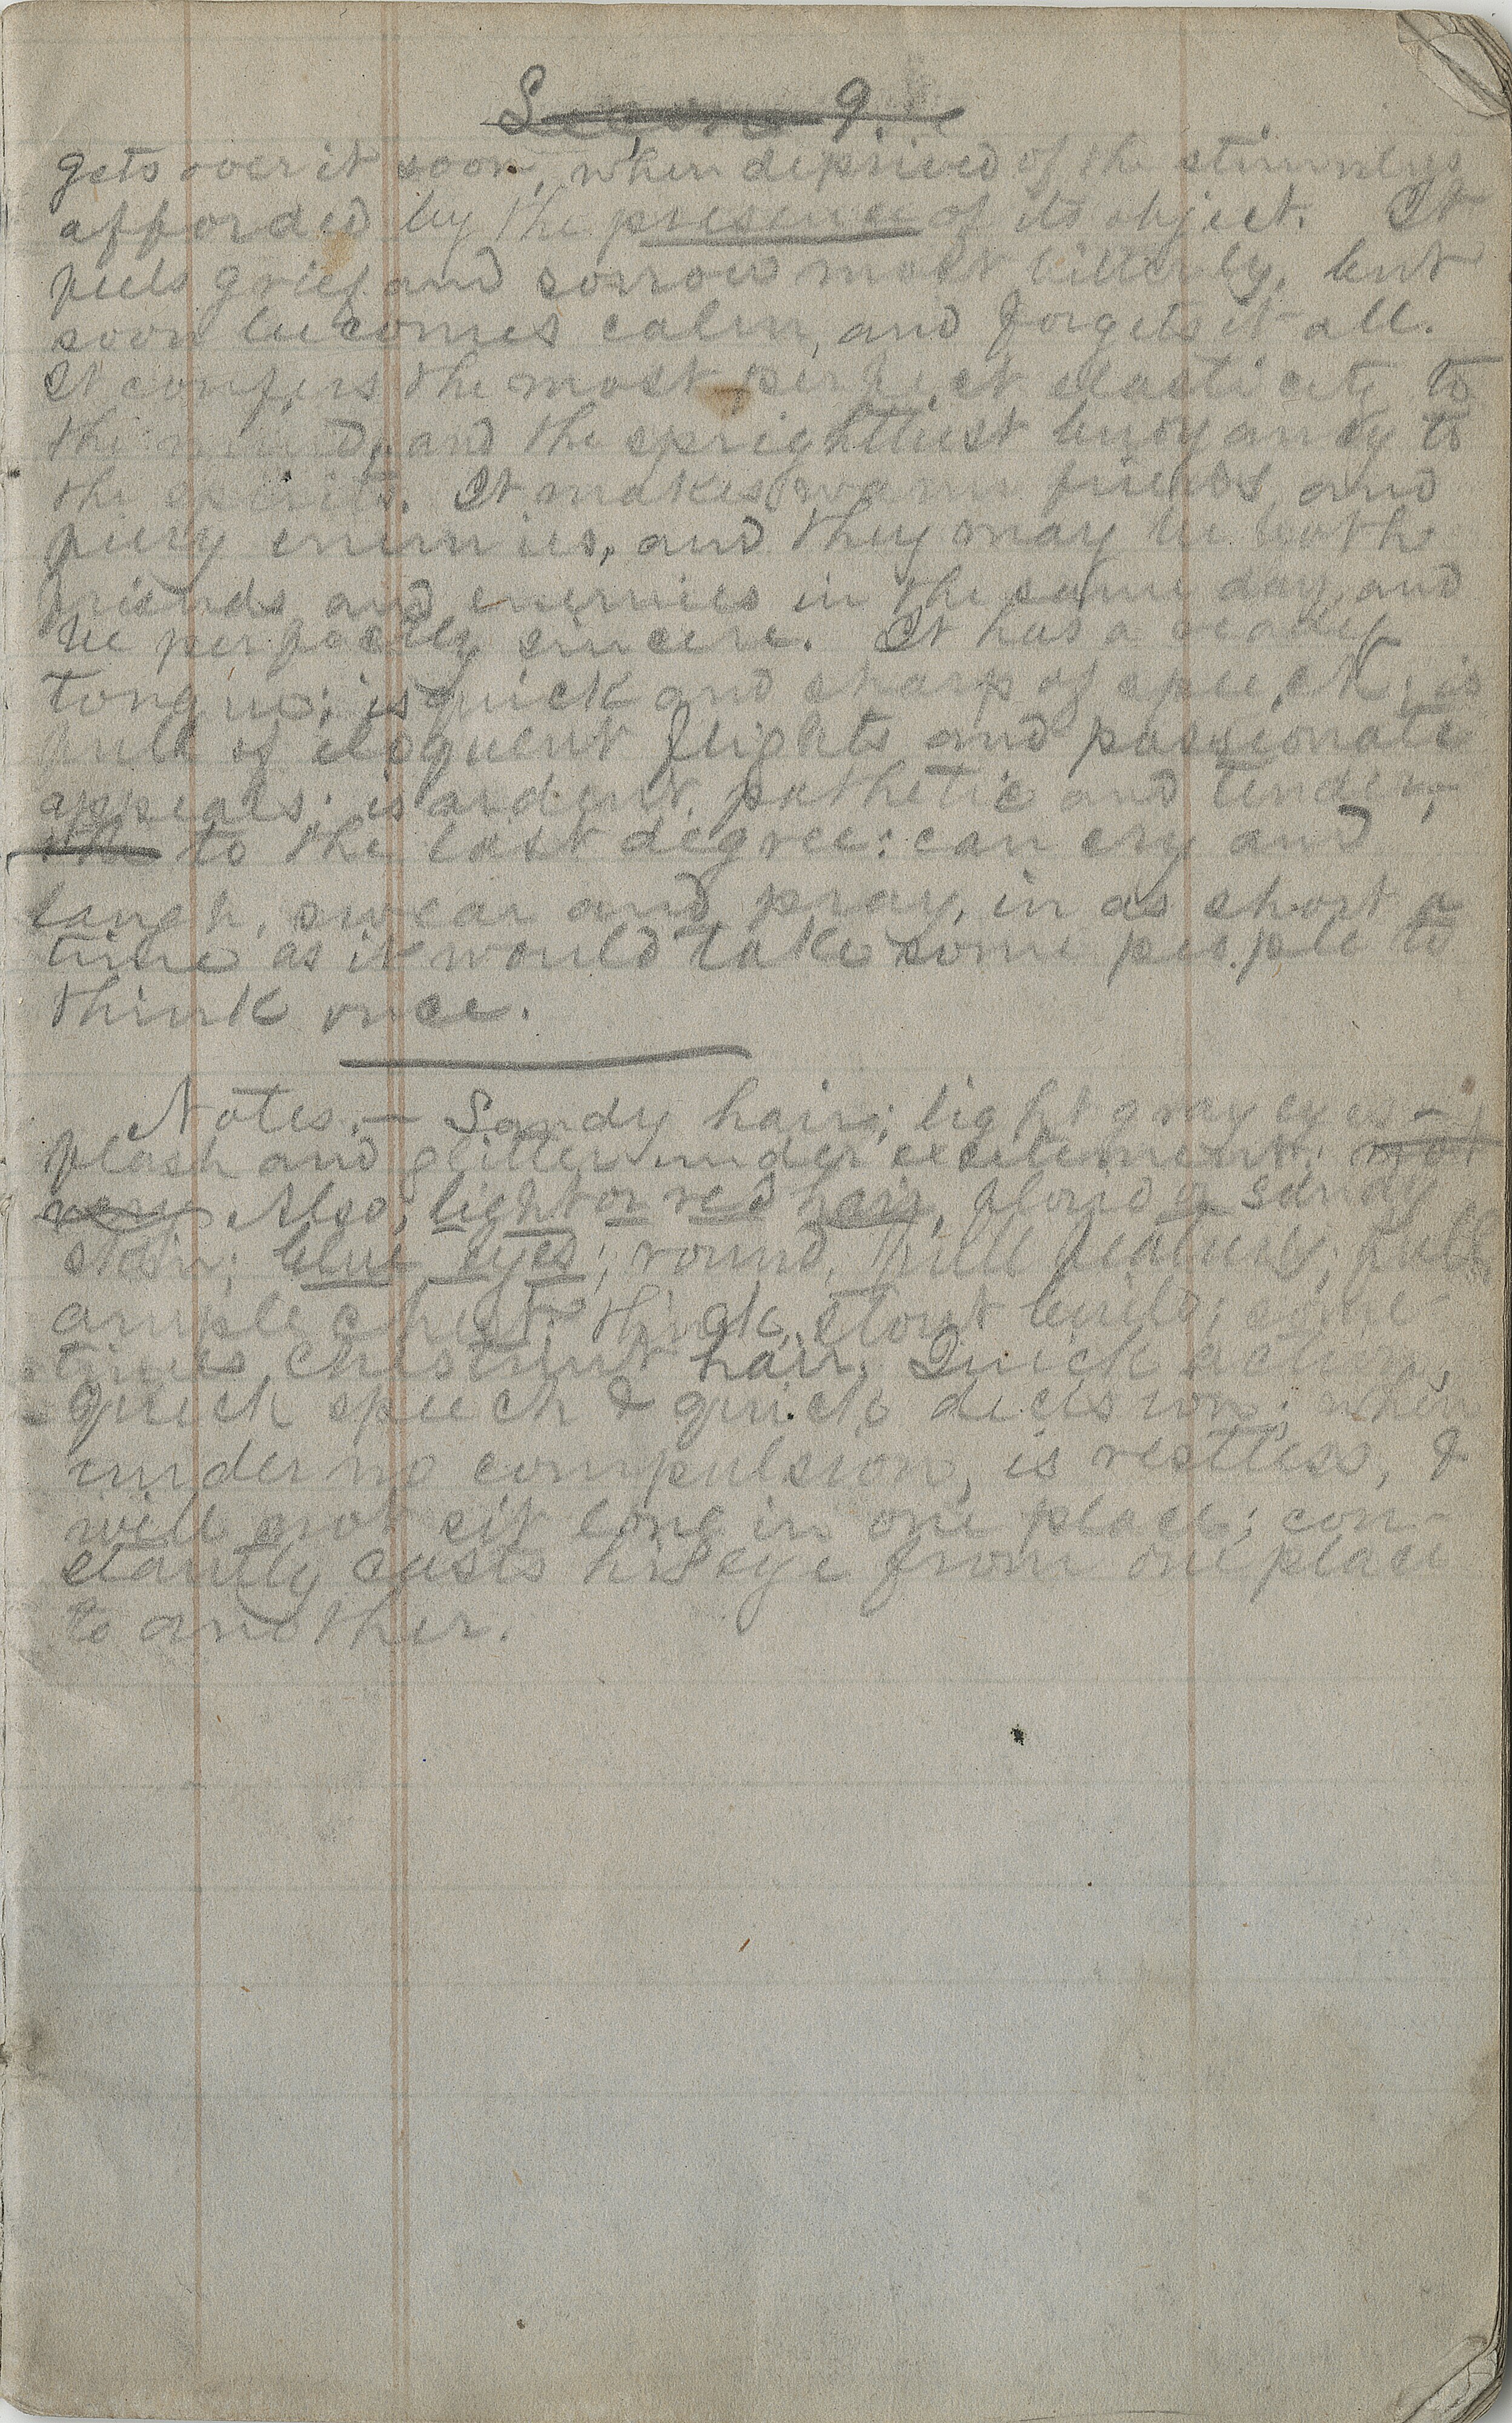 Lesson 9.
gets over it soon, when deprived of the stimulus
afforded by the presence of its object. It
feels grief and sorrow most bitterly, but
soon becomes calm, and forgets it all.
It confers the most perfect elasticity to
the mind, and the sprightliest buoyancy to
the spirits. It makes warm friends, and
fiery enemies, and they may be both
friends and enemies in the same day, and
be perfectly sincere. It has a ready
tongue; is quick and sharp of speech; is
full of eloquent flights and passionate
appeals; is ardent, pathetic and tender,
to the last degree: can cry and
laugh, swear and pray, in as short a
time as it would take some people to
think once.
Notes. — Sandy hair; light gray eyes —
flash and glitter under excitement; not
very Also, light or red hair, florid or sandy
skin; blue eyes; round, full features; full
ample chest; thick, stout build; some-
times chestnut hair. Quick action,
quick speech & quick decision; when
under no compulsion, is restless, &
will not sit long in one place; con-
stantly casts his eye from one place
to another.